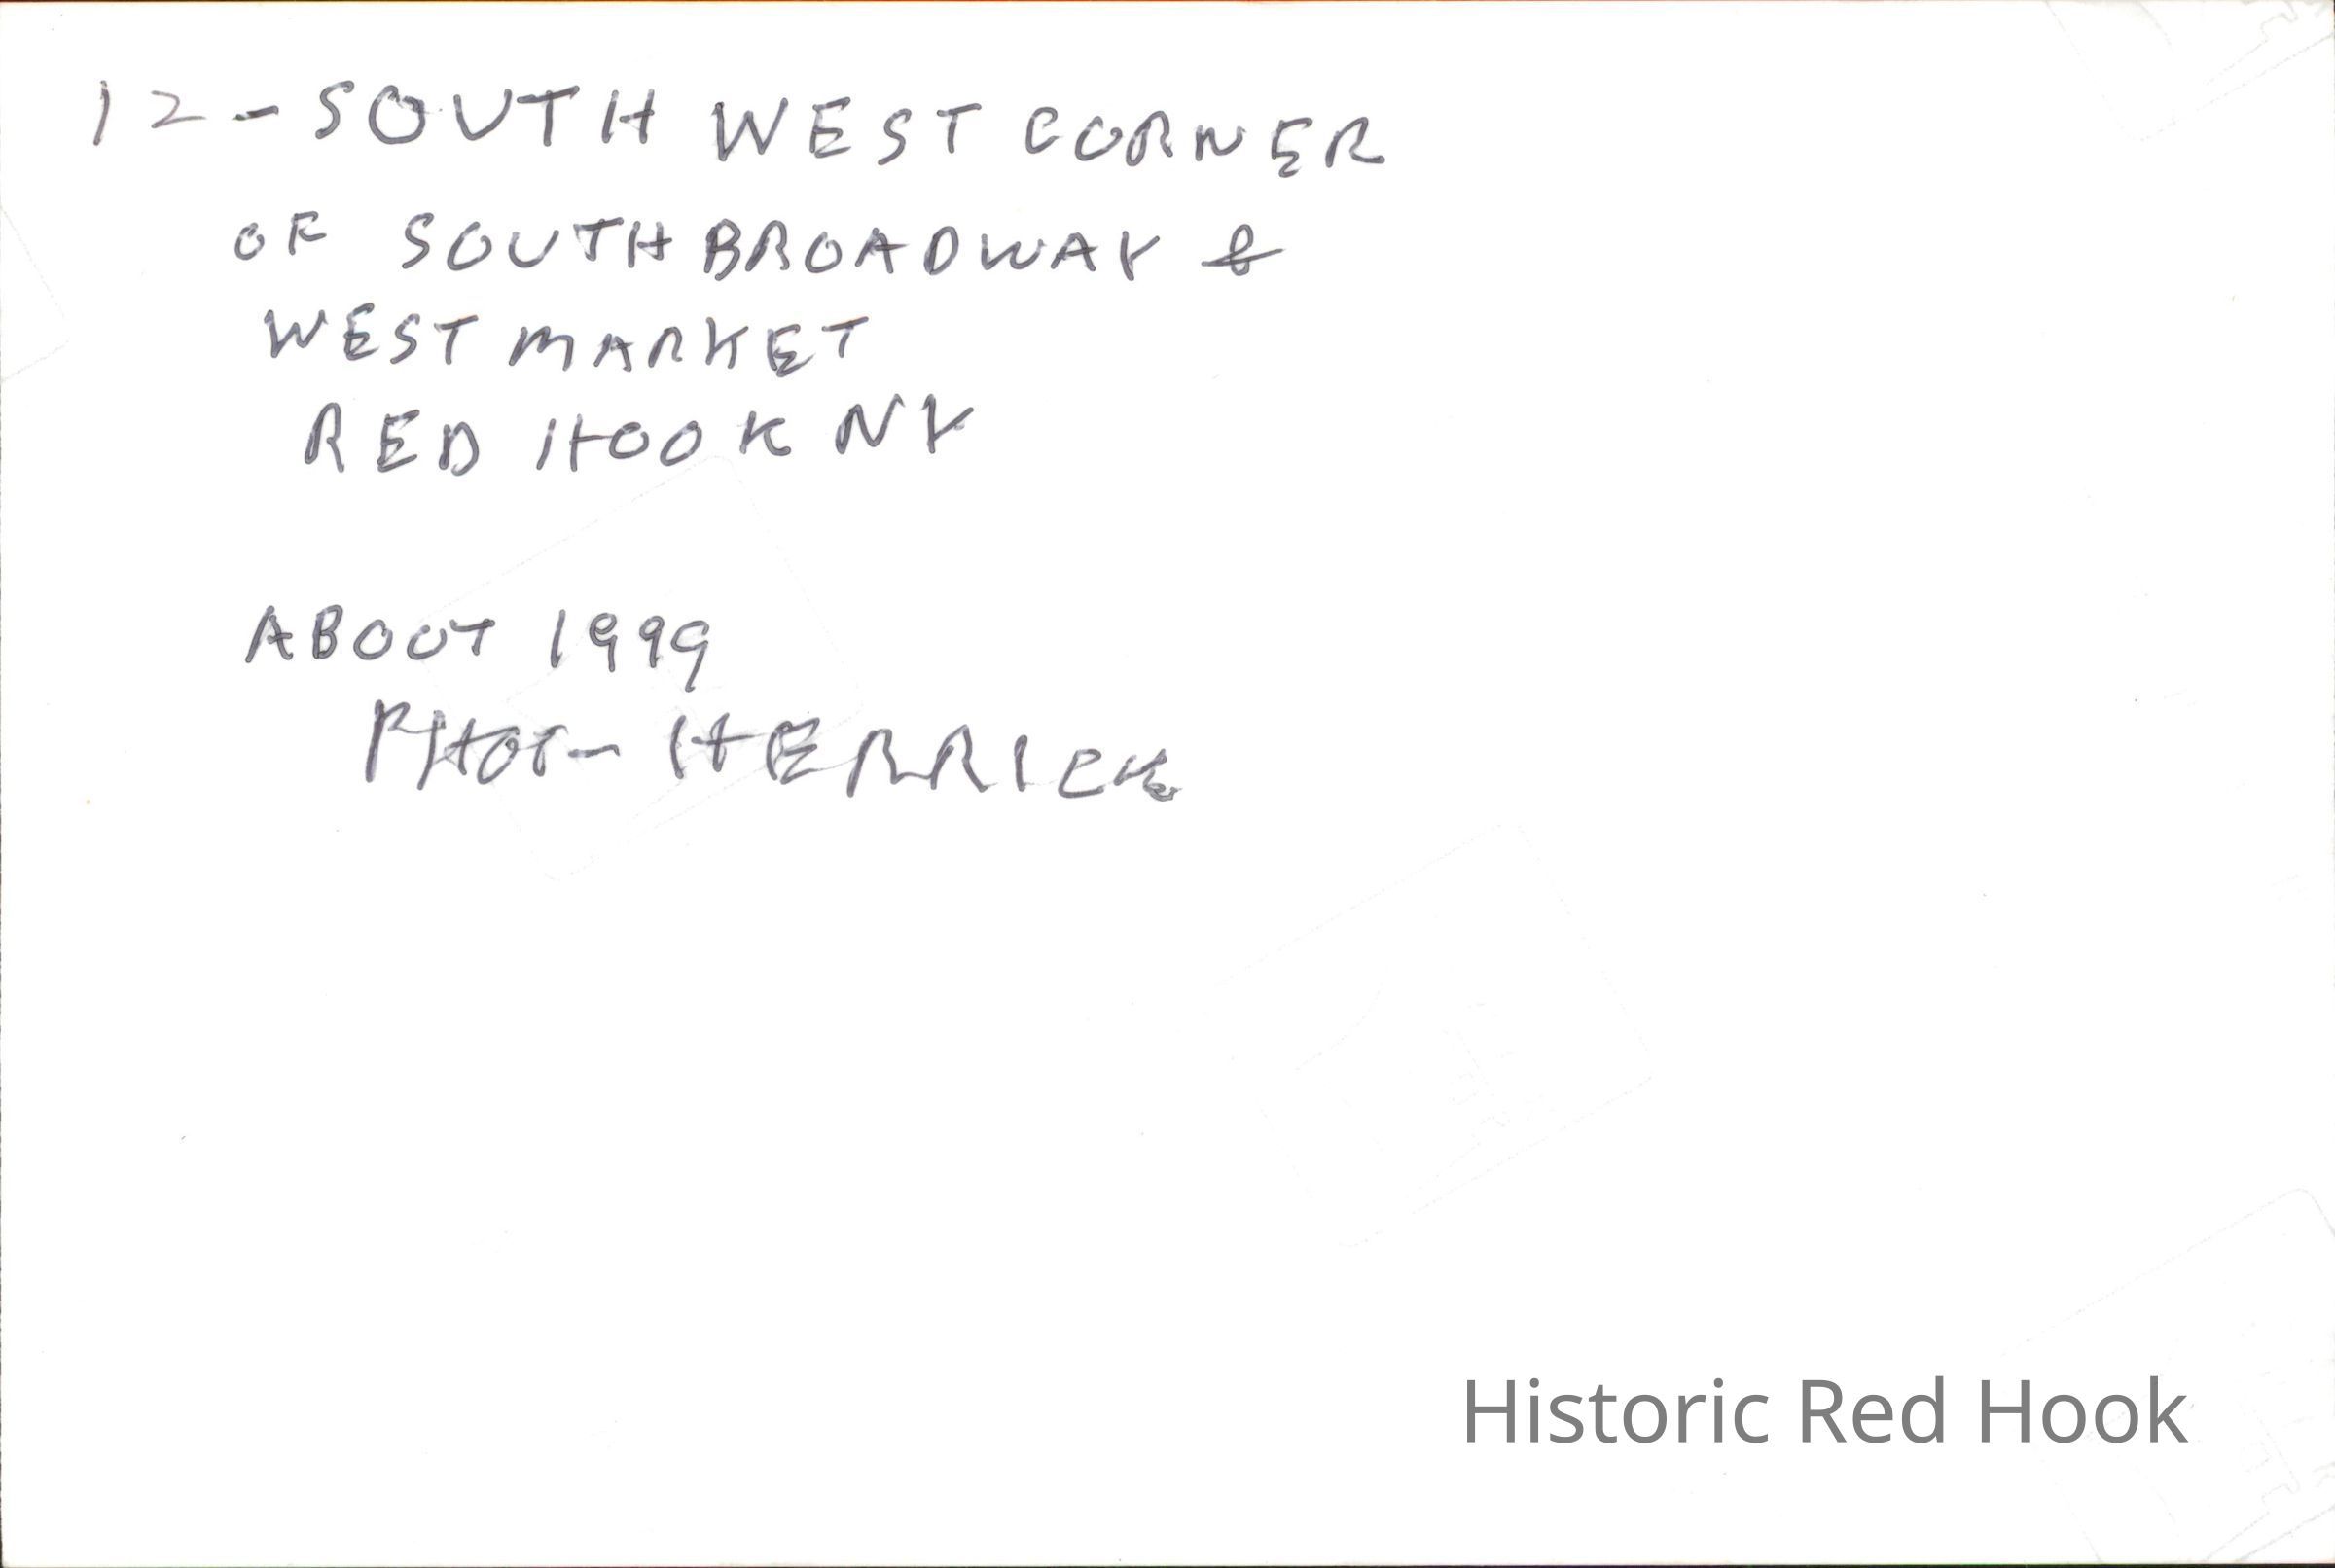 12 - SOUTH WEST CORNER
OF SOUTH BROADWAY &
WEST MARKET
RED HOOK NY
ABOUT 1999
PHOT - HERRICK
Historic Red Hook